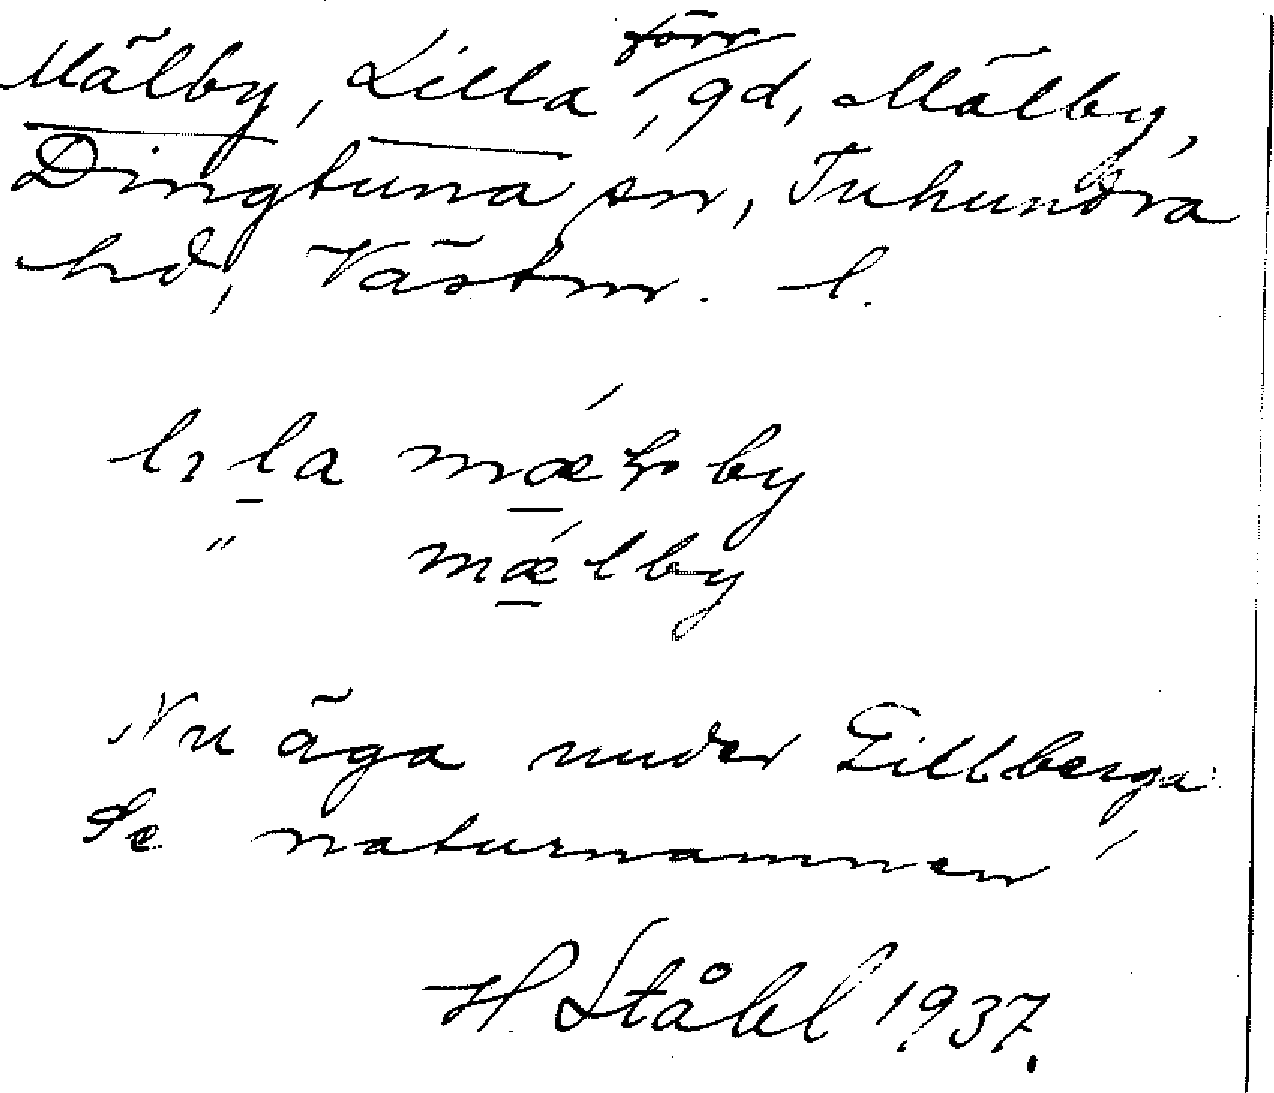 Mälby, Lilla, förr gd, Mälby,
Dingtuna sn, Tuhundra
hd, Västm. l.
by
" mǽlby
Nu äga under Lillberga.
Se naturnamnen
H Ståhl 1937.